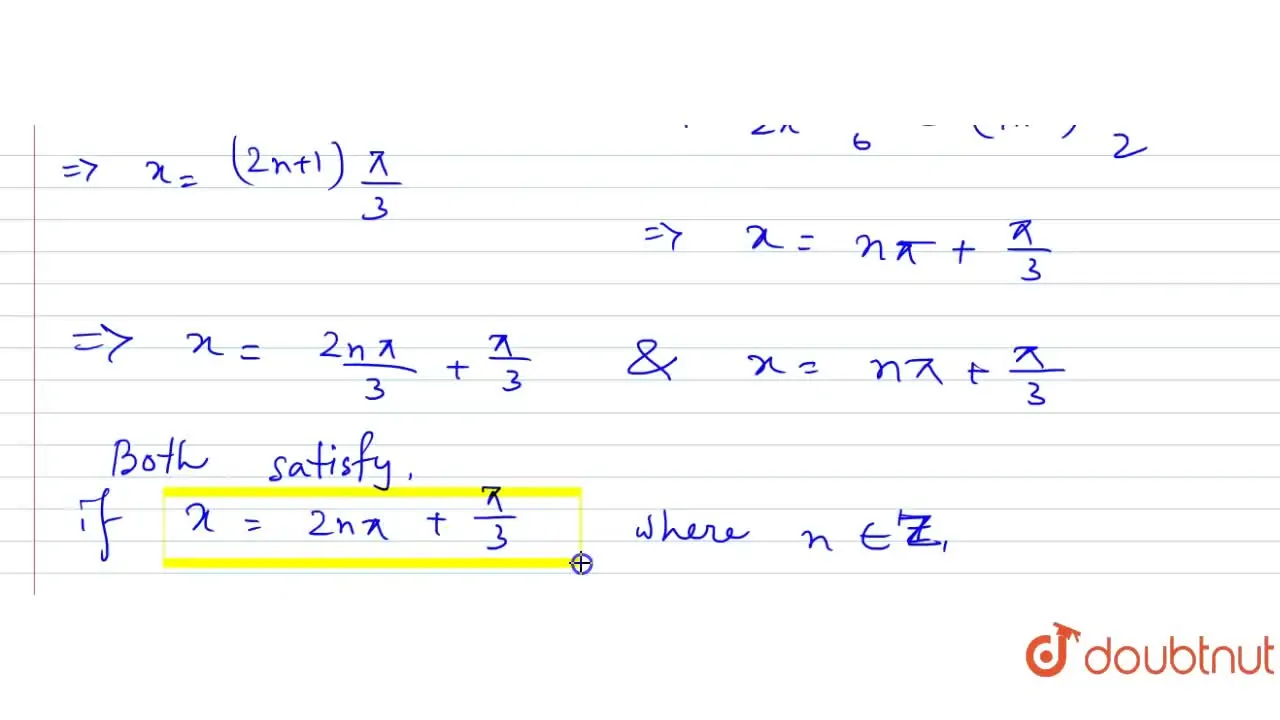 2x 6 = ( ) 2
=> x = (2n+1) π/3
=> x = nπ + π/3
=> x = 2nπ/3 + π/3 & x = nπ + π/3
Both satisfy.
if x = 2nπ + π/3 where n ∈ Z,
doubtnut